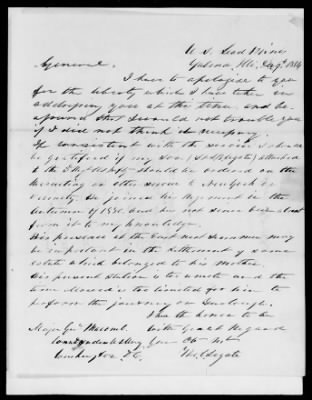 U. S. Lead Mines
Galena, Ills. 9th
General
I have to apologise to you
for the liberty which I have taken in
addressing you at this time and be
assured that I would not trouble you
if I did not think it necessary.
If consistent with the service I should
be gratified if my Son attached
to the should be ordered on the
Recruiting or other service to New York or
vicinity. He joined his Regiment in the
Autumn of and has not since been absent
from it to my knowledge.
His presence at the East next Summer may
be important in the settlement of some
estate which belonged to his Mother.
His present station is too remote and the
time allowed is too limited for him to
perform the journey on furlough.
I have the honor to be
Major Genl Macomb With Great Regard
Your Obt Svt
Washington D.C. Legate